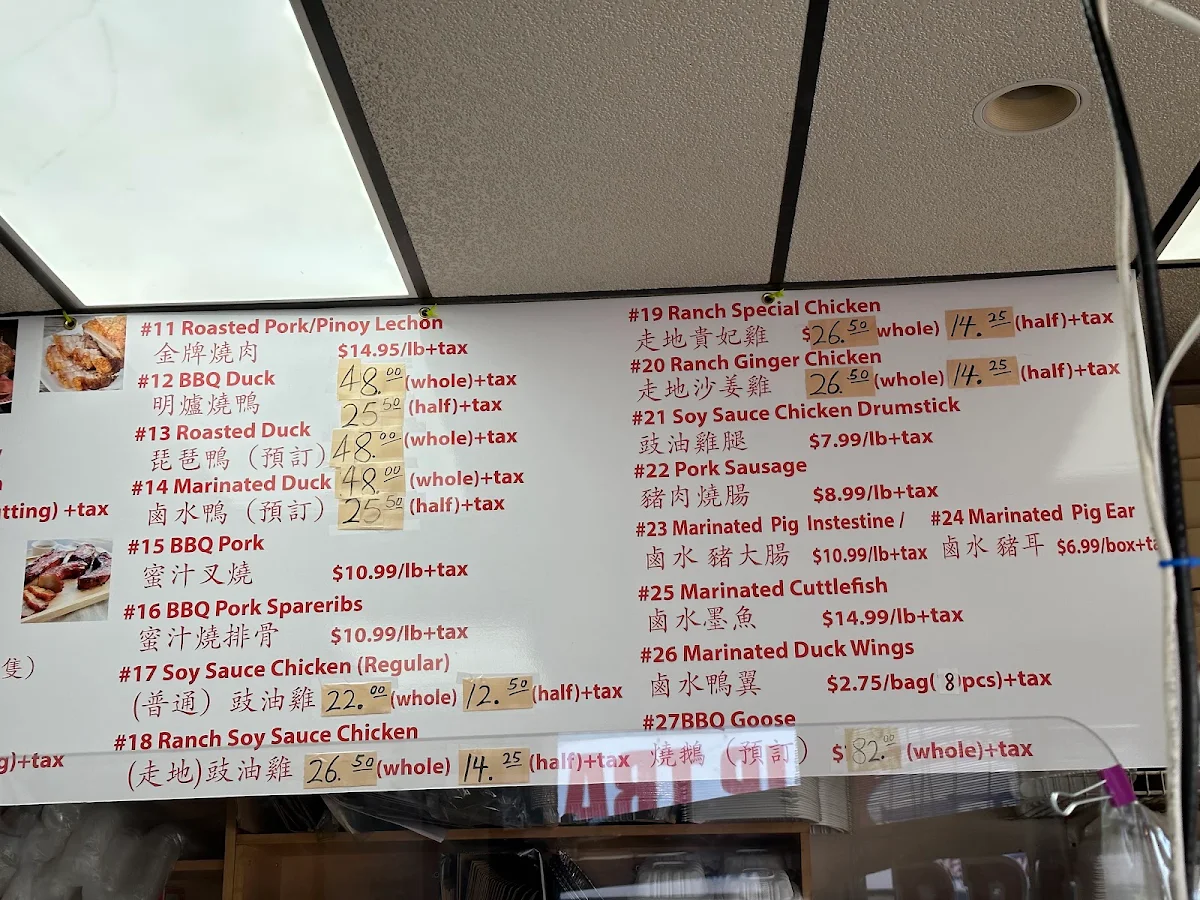 #11 Roasted Pork/Pinoy Lechon
金牌燒肉 $14.95/lb+tax
#12 BBQ Duck 48.00 (whole)+tax
明爐燒鴨 25.50 (half)+tax
#13 Roasted Duck
琵琶鴨（預訂） 48.00 (whole)+tax
#14 Marinated Duck 48.00 (whole)+tax
鹵水鴨（預訂） 25.50 (half)+tax
#15 BBQ Pork
蜜汁叉燒 $10.99/lb+tax
#16 BBQ Pork Spareribs
蜜汁燒排骨 $10.99/lb+tax
#17 Soy Sauce Chicken (Regular)
(普通) 豉油雞 22.00 (whole) 12.50 (half)+tax
#18 Ranch Soy Sauce Chicken
(走地)豉油雞 26.50 (whole) 14.25 (half)+tax
#19 Ranch Special Chicken
走地貴妃雞 $26.50 whole) 14.25 (half)+tax
#20 Ranch Ginger Chicken
走地沙姜雞 26.50 (whole) 14.25 (half)+tax
#21 Soy Sauce Chicken Drumstick
豉油雞腿 $7.99/lb+tax
#22 Pork Sausage
豬肉燒腸 $8.99/lb+tax
#23 Marinated Pig Instestine /
鹵水豬大腸 $10.99/lb+tax
#24 Marinated Pig Ear
鹵水豬耳 $6.99/box+ta
#25 Marinated Cuttlefish
鹵水墨魚 $14.99/lb+tax
#26 Marinated Duck Wings
鹵水鴨翼 $2.75/bag(8pcs)+tax
#27BBQ Goose
燒鵝（預訂） $82.00 (whole)+tax
tting) +tax
隻）
g)+tax